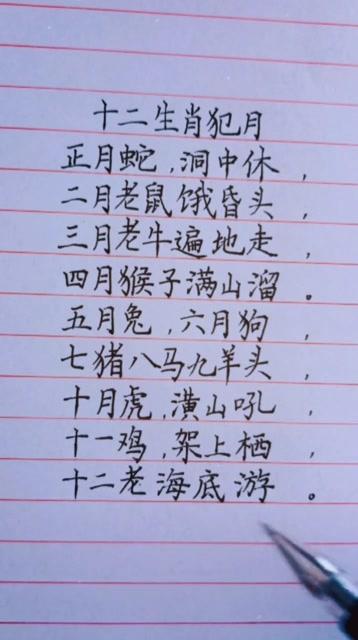 十二生肖犯月
正月蛇,洞中休,
二月老鼠饿昏头,
三月老牛遍地走,
四月猴子满山溜。
五月兔,六月狗,
七猪八马九羊头,
十月虎,潢山吼,
十一鸡,架上栖,
十二老海底游。